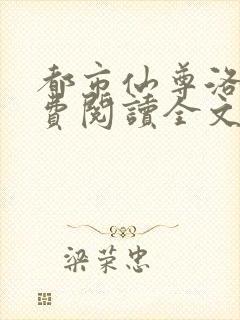 都市仙尊洛
费阅讀全文
梁荣忠